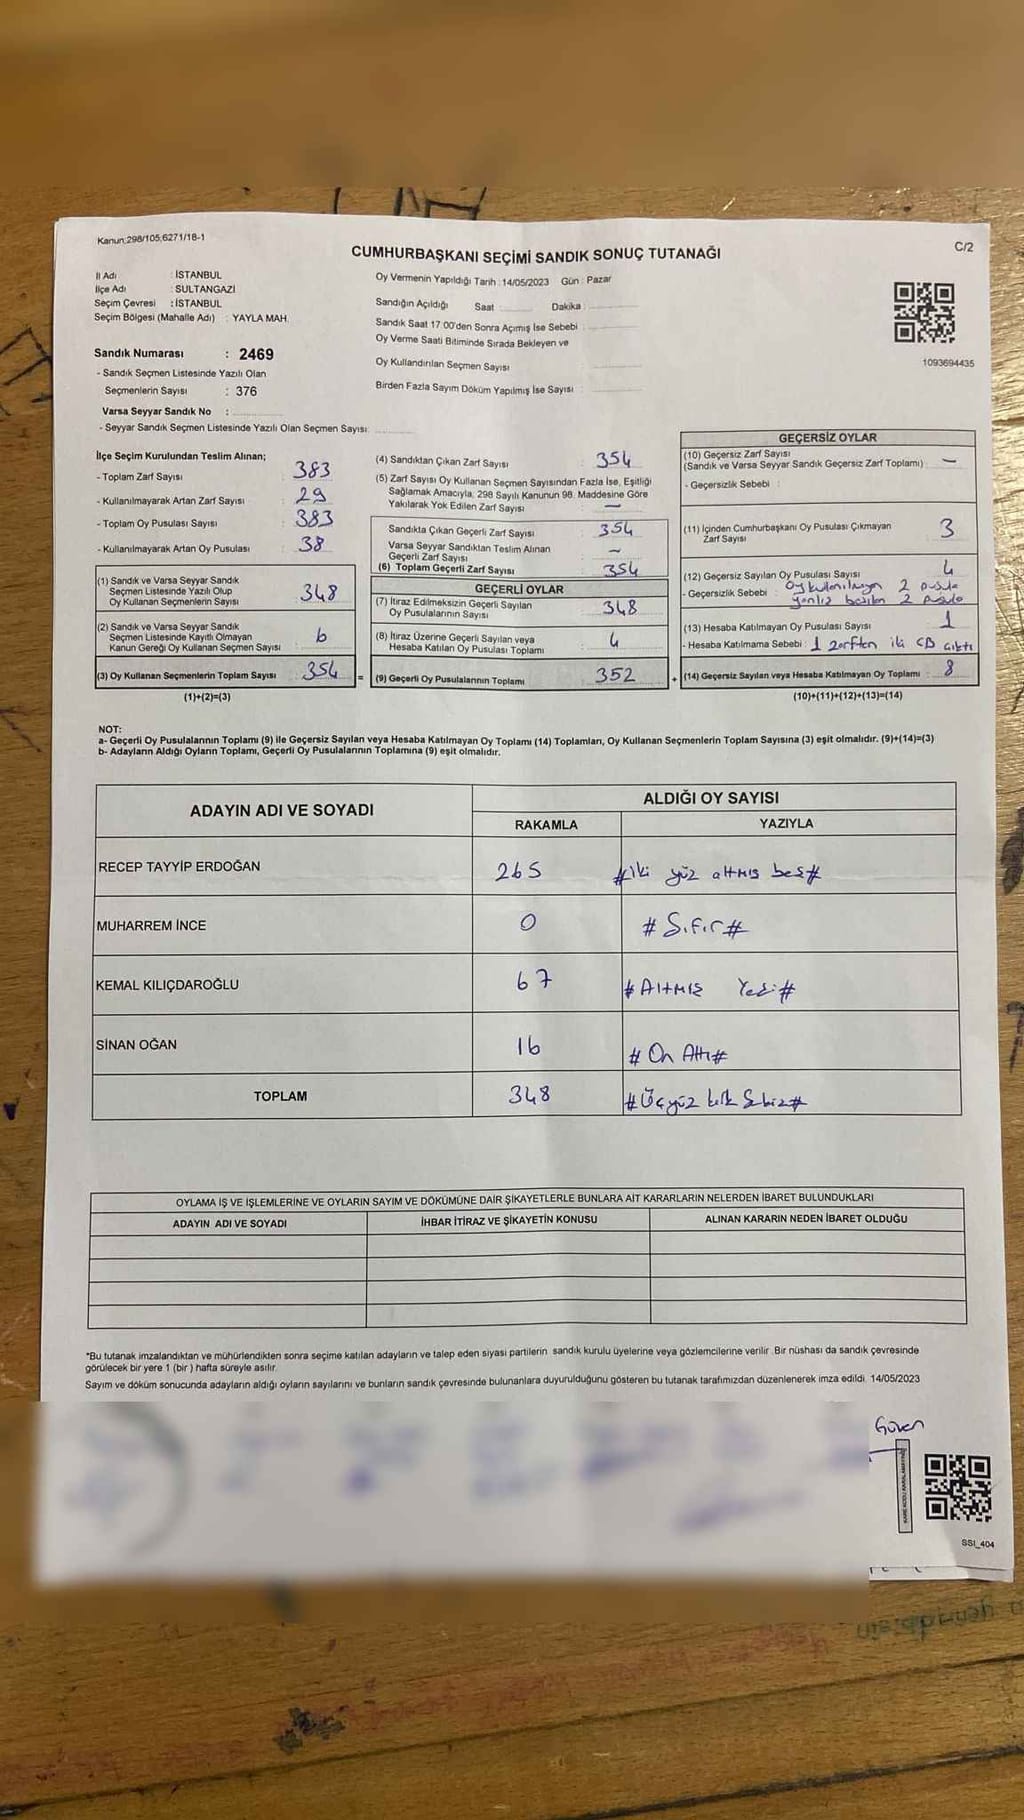 Kanun:298/105;6271/18-1
C/2
CUMHURBAŞKANI SEÇİMİ SANDIK SONUÇ TUTANAĞI
İl Adı : İSTANBUL
İlçe Adı : SULTANGAZİ
Seçim Çevresi : İSTANBUL
Seçim Bölgesi (Mahalle Adı) : YAYLA MAH.
Sandık Numarası : 2469
- Sandık Seçmen Listesinde Yazılı Olan
Seçmenlerin Sayısı : 376
Varsa Seyyar Sandık No :
- Seyyar Sandık Seçmen Listesinde Yazılı Olan Seçmen Sayısı:
Oy Vermenin Yapıldığı Tarih : 14/05/2023 Gün : Pazar
Sandığın Açıldığı Saat : Dakika :
Sandık Saat 17:00'den Sonra Açımış İse Sebebi :
Oy Verme Saati Bitiminde Sırada Bekleyen ve
Oy Kullandırılan Seçmen Sayısı
Birden Fazla Sayım Döküm Yapılmış İse Sayısı :
1093694435
İlçe Seçim Kurulundan Teslim Alınan;
- Toplam Zarf Sayısı : 383
- Kullanılmayarak Artan Zarf Sayısı : 29
- Toplam Oy Pusulası Sayısı : 383
- Kullanılmayarak Artan Oy Pusulası : 38
(1) Sandık ve Varsa Seyyar Sandık
Seçmen Listesinde Yazılı Olup
Oy Kullanan Seçmenlerin Sayısı : 348
(2) Sandık ve Varsa Seyyar Sandık
Seçmen Listesinde Kayıtlı Olmayan
Kanun Gereği Oy Kullanan Seçmen Sayısı : 6
(3) Oy Kullanan Seçmenlerin Toplam Sayısı : 354 =
(1)+(2)=(3)
(4) Sandıktan Çıkan Zarf Sayısı : 354
(5) Zarf Sayısı Oy Kullanan Seçmen Sayısından Fazla İse, Eşitliği
Sağlamak Amacıyla, 298 Sayılı Kanunun 98. Maddesine Göre
Yakılarak Yok Edilen Zarf Sayısı : —
Sandıkta Çıkan Geçerli Zarf Sayısı : 354
Varsa Seyyar Sandıktan Teslim Alınan
Geçerli Zarf Sayısı : ~
(6) Toplam Geçerli Zarf Sayısı : 354
GEÇERLİ OYLAR
(7) İtiraz Edilmeksizin Geçerli Sayılan
Oy Pusulalarının Sayısı : 348
(8) İtiraz Üzerine Geçerli Sayılan veya
Hesaba Katılan Oy Pusulası Toplamı : 4
(9) Geçerli Oy Pusulalarının Toplamı : 352 +
GEÇERSİZ OYLAR
(10) Geçersiz Zarf Sayısı
(Sandık ve Varsa Seyyar Sandık Geçersiz Zarf Toplamı) : —
- Geçersizlik Sebebi :
(11) İçinden Cumhurbaşkanı Oy Pusulası Çıkmayan
Zarf Sayısı : 3
(12) Geçersiz Sayılan Oy Pusulası Sayısı : 4
- Geçersizlik Sebebi : Oy kullanılmayan 2 pusula
yanlış basılan 2 pusula
(13) Hesaba Katılmayan Oy Pusulası Sayısı : 1
- Hesaba Katılmama Sebebi : 1 zarftan iki CB çıktı
(14) Geçersiz Sayılan veya Hesaba Katılmayan Oy Toplamı : 8
(10)+(11)+(12)+(13)=(14)
NOT:
a- Geçerli Oy Pusulalarının Toplamı (9) ile Geçersiz Sayılan veya Hesaba Katılmayan Oy Toplamı (14) Toplamları, Oy Kullanan Seçmenlerin Toplam Sayısına (3) eşit olmalıdır. (9)+(14)=(3)
b- Adayların Aldığı Oyların Toplamı, Geçerli Oy Pusulalarının Toplamına (9) eşit olmalıdır.
ADAYIN ADI VE SOYADI
ALDIĞI OY SAYISI
RAKAMLA YAZIYLA
RECEP TAYYİP ERDOĞAN 265 #İki yüz altmış beş#
MUHARREM İNCE 0 #Sıfır#
KEMAL KILIÇDAROĞLU 67 #Altmış Yedi#
SİNAN OĞAN 16 #On Altı#
TOPLAM 348 #Üçyüz kırk Sekiz#
OYLAMA İŞ VE İŞLEMLERİNE VE OYLARIN SAYIM VE DÖKÜMÜNE DAİR ŞİKAYETLERLE BUNLARA AİT KARARLARIN NELERDEN İBARET BULUNDUKLARI
ADAYIN ADI VE SOYADI İHBAR İTİRAZ VE ŞİKAYETİN KONUSU ALINAN KARARIN NEDEN İBARET OLDUĞU
*Bu tutanak imzalandıktan ve mühürlendikten sonra seçime katılan adayların ve talep eden siyasi partilerin sandık kurulu üyelerine veya gözlemcilerine verilir. Bir nüshası da sandık çevresinde
görülecek bir yere 1 (bir ) hafta süreyle asılır.
Sayım ve döküm sonucunda adayların aldığı oyların sayılarını ve bunların sandık çevresinde bulunanlara duyurulduğunu gösteren bu tutanak tarafımızdan düzenlenerek imza edildi. 14/05/2023
Güven
SSI_404